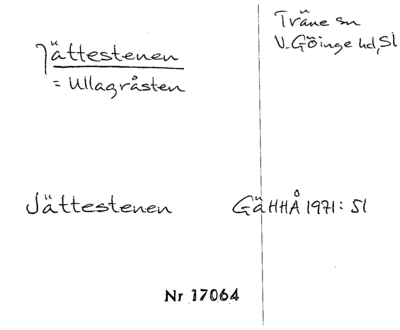 Jättestenen
= Ullagråsten
Träne sn
V. Göinge hd, Sk
Jättestenen
GÄHHÅ 1971: 51
Nr 17064